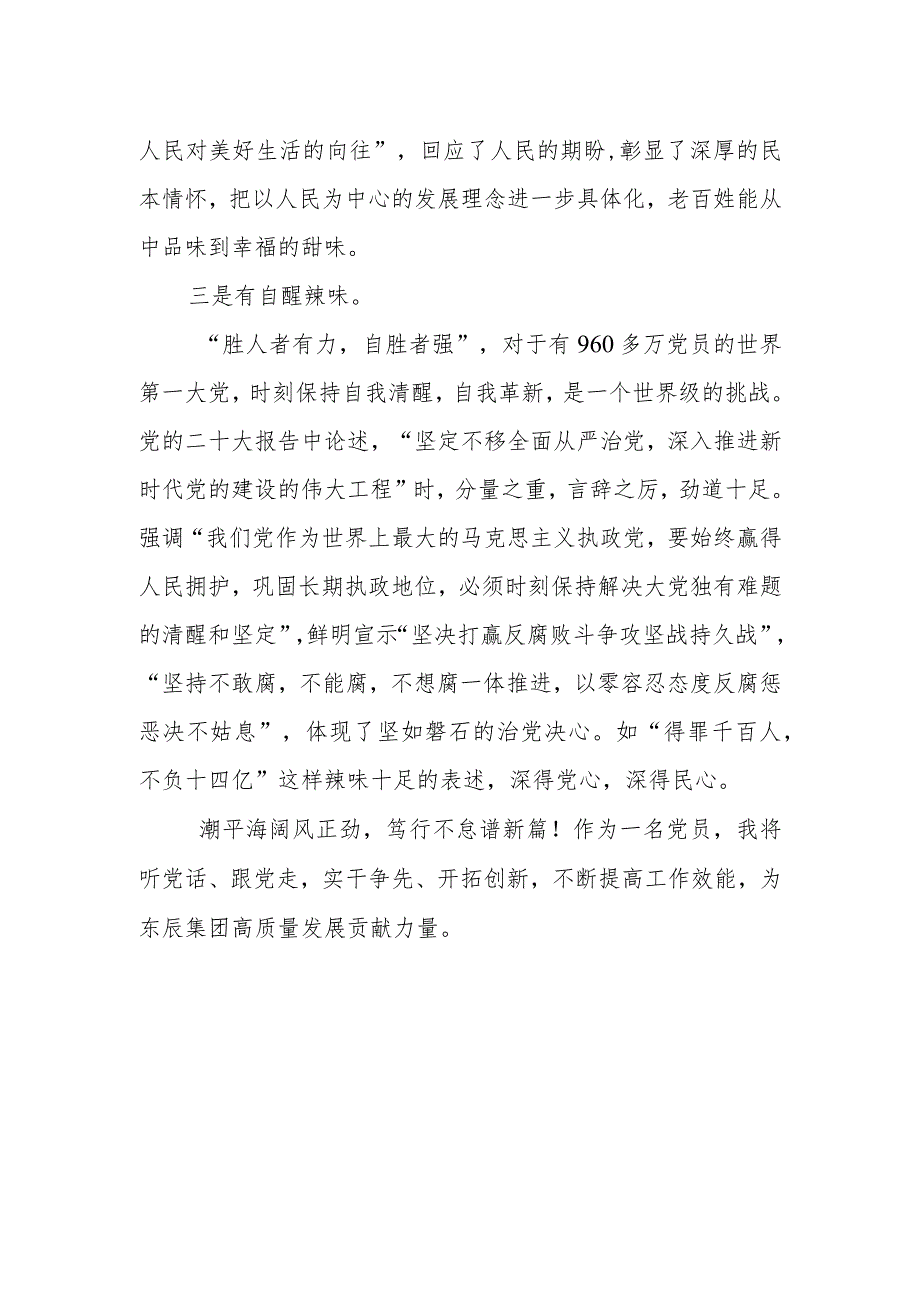 人民对美好生活的向往”，回应了人民的期盼,彰显了深厚的民
本情怀，把以人民为中心的发展理念进一步具体化，老百姓能从
中品味到幸福的甜味。
三是有自醒辣味。
“胜人者有力，自胜者强”，对于有 960 多万党员的世界
第一大党，时刻保持自我清醒，自我革新，是一个世界级的挑战。
党的二十大报告中论述，“坚定不移全面从严治党，深入推进新
时代党的建设的伟大工程”时，分量之重，言辞之厉，劲道十足。
强调“我们党作为世界上最大的马克思主义执政党，要始终赢得
人民拥护，巩固长期执政地位，必须时刻保持解决大党独有难题
的清醒和坚定”,鲜明宣示“坚决打赢反腐败斗争攻坚战持久战”，
“坚持不敢腐，不能腐，不想腐一体推进，以零容忍态度反腐惩
恶决不姑息”，体现了坚如磐石的治党决心。如“得罪千百人，
不负十四亿”这样辣味十足的表述，深得党心，深得民心。
潮平海阔风正劲，笃行不怠谱新篇！作为一名党员，我将
听党话、跟党走，实干争先、开拓创新，不断提高工作效能，为
东辰集团高质量发展贡献力量。